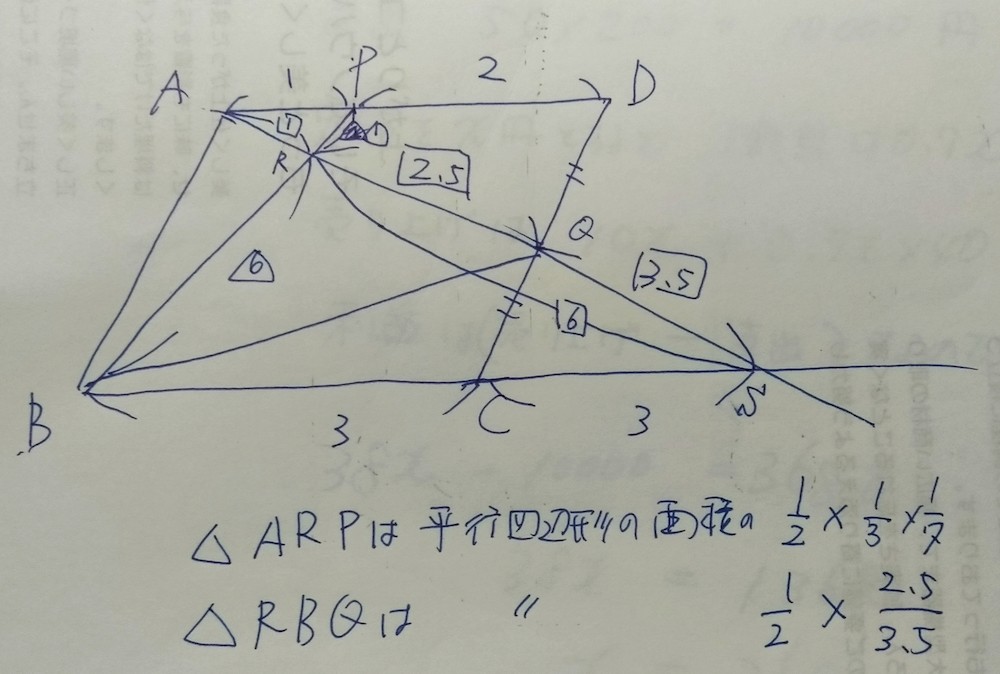 P
1
2
A
D
1
1
R
2.5
Q
6
3.5
6
B
C
S
3
3
△ARPは平行四辺形の面積の 1/2 × 1/3 × 1/7
△RBQは 〃 1/2 × 2.5/3.5